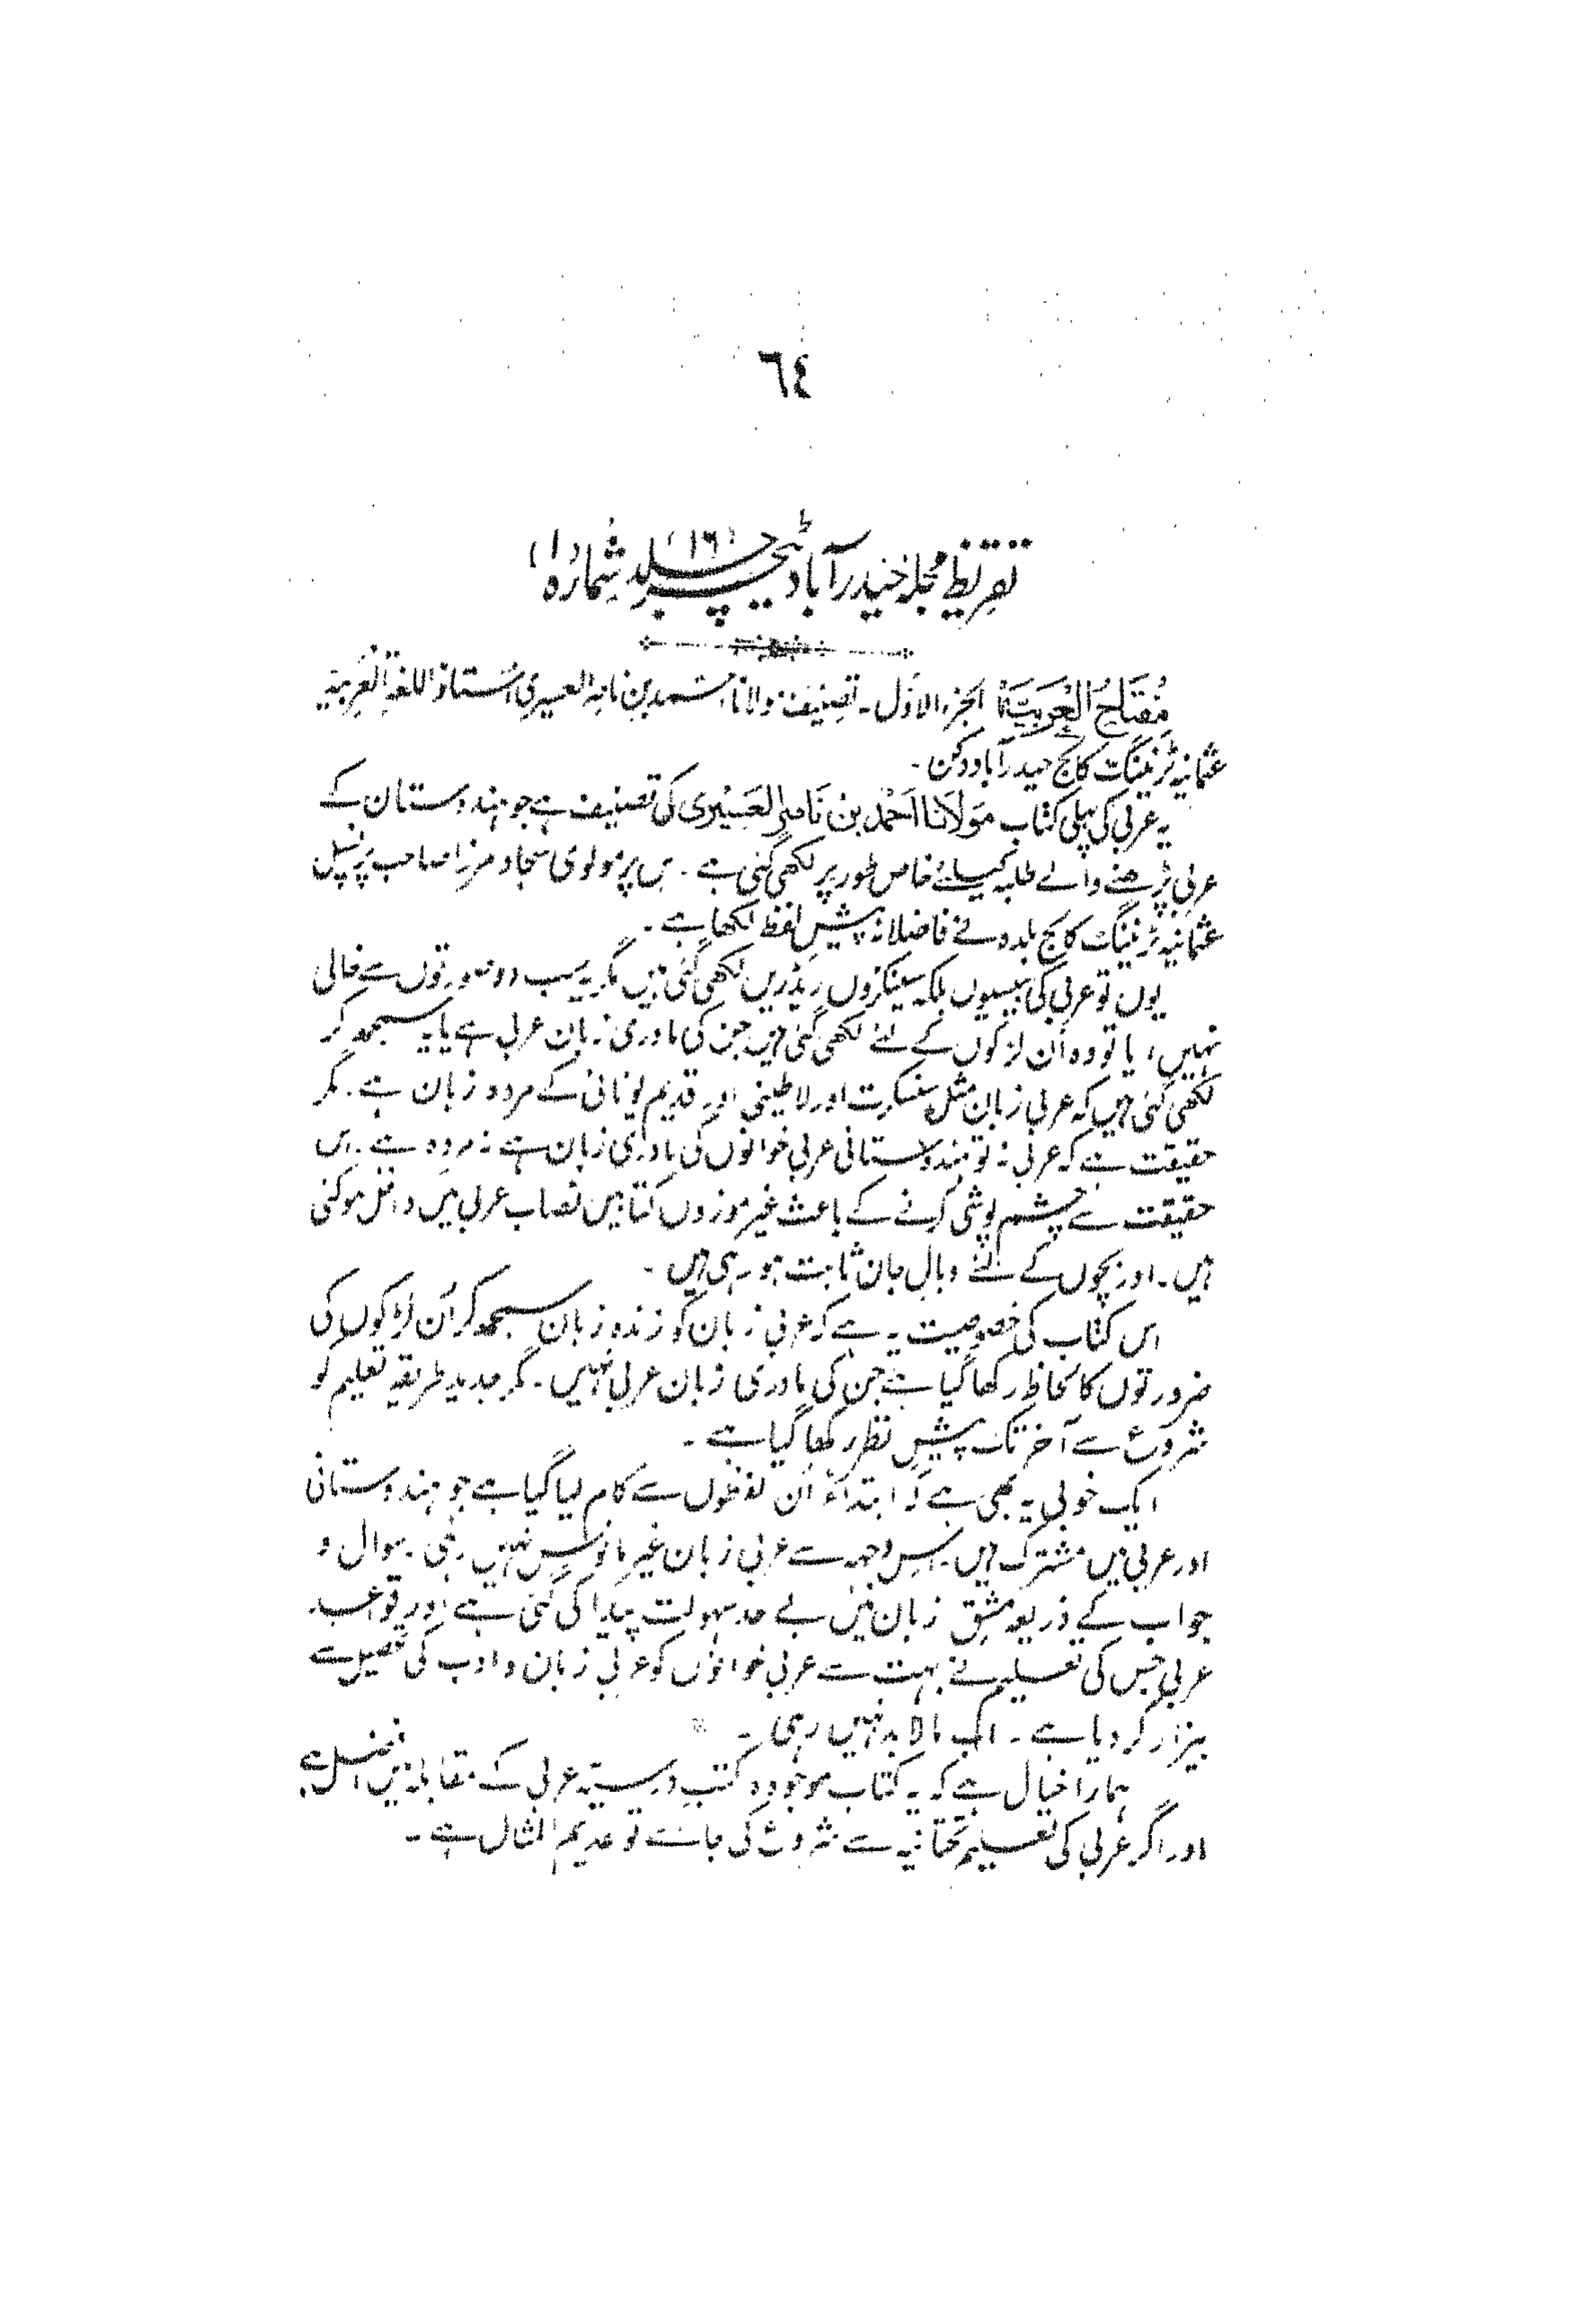 ٦٤
تقریظ مجلہ حیدرآباد ٹیچر جلد (۱۶) شمارہ (۱)
مُفْتَاحُ الْعَرَبِیَّۃ الجزء الاوّل۔ تصنیف مولانا احمد بن ناصر العسیری استاذ اللغۃ العربیۃ
عثمانیہ ٹریننگ کالج حیدرآباد دکن۔
یہ عربی کی پہلی کتاب مَولَانَا اَحْمَد بن نَاصِر العَسِیْری کی تصنیف ہے جو ہندوستان کے
عربی پڑھنے والے طلبہ کیلئے خاص طور پر لکھی گئی ہے۔ جس پر مولوی سجاد مرزا صاحب پرنسپل
عثمانیہ ٹریننگ کالج بلدہ نے فاضلانہ پیش لفظ لکھا ہے۔
یوں تو عربی کی بیسیوں بلکہ سینکڑوں ریڈریں لکھی گئی ہیں مگر یہ سب دو صورتوں سے خالی
نہیں، یا تو وہ اُن لڑکوں کے لئے لکھی گئی ہیں جن کی مادری زبان عربی ہے یا یہ سمجھ کر
لکھی گئی ہیں کہ عربی زبان مثل سنسکرت اور لاطینی اور قدیم یونانی کے مردہ زبان ہے۔ مگر
حقیقت ہے کہ عربی نہ تو ہندوستانی عربی خوانوں کی مادری زبان ہے نہ مردہ ہے۔ اس
حقیقت سے چشم پوشی کرنے کے باعث غیر موزوں کتابیں نصاب عربی میں داخل ہوگئی
ہیں۔ اور بچوں کے لئے وبالِ جان ثابت ہو رہی ہیں۔
اس کتاب کی خصوصیت یہ ہے کہ عربی زبان کو زندہ زبان سمجھ کر اُن لڑکوں کی
ضرورتوں کا لحاظ رکھا گیا ہے جن کی مادری زبان عربی نہیں۔ مگر جدید طریقہ تعلیم کو
شروع سے آخر تک پیشِ نظر رکھا گیا ہے۔
ایک خوبی یہ بھی ہے کہ ابتداءً اُن لفظوں سے کام لیا گیا ہے جو ہندوستانی
اور عربی میں مشترک ہیں۔ جس وجہ سے عربی زبان غیر مانوس نہیں رہی۔ سوال و
جواب کے ذریعہ مشقِ زبان میں بے حد سہولت پیدا کی گئی ہے اور قواعد
عربی جس کی تعلیم نے بہت سے عربی خوانوں کو عربی زبان و ادب کی تحصیل سے
بیزار کر دیا ہے۔ اب مالابد نہیں رہی۔
ہمارا خیال ہے کہ یہ کتاب موجودہ کتبِ درسیۂ عربی کے مقابلہ میں افضل ہے
اور اگر عربی کی تعلیم تحتانیہ سے شروع کی جائے تو عدیم المثال ہے۔